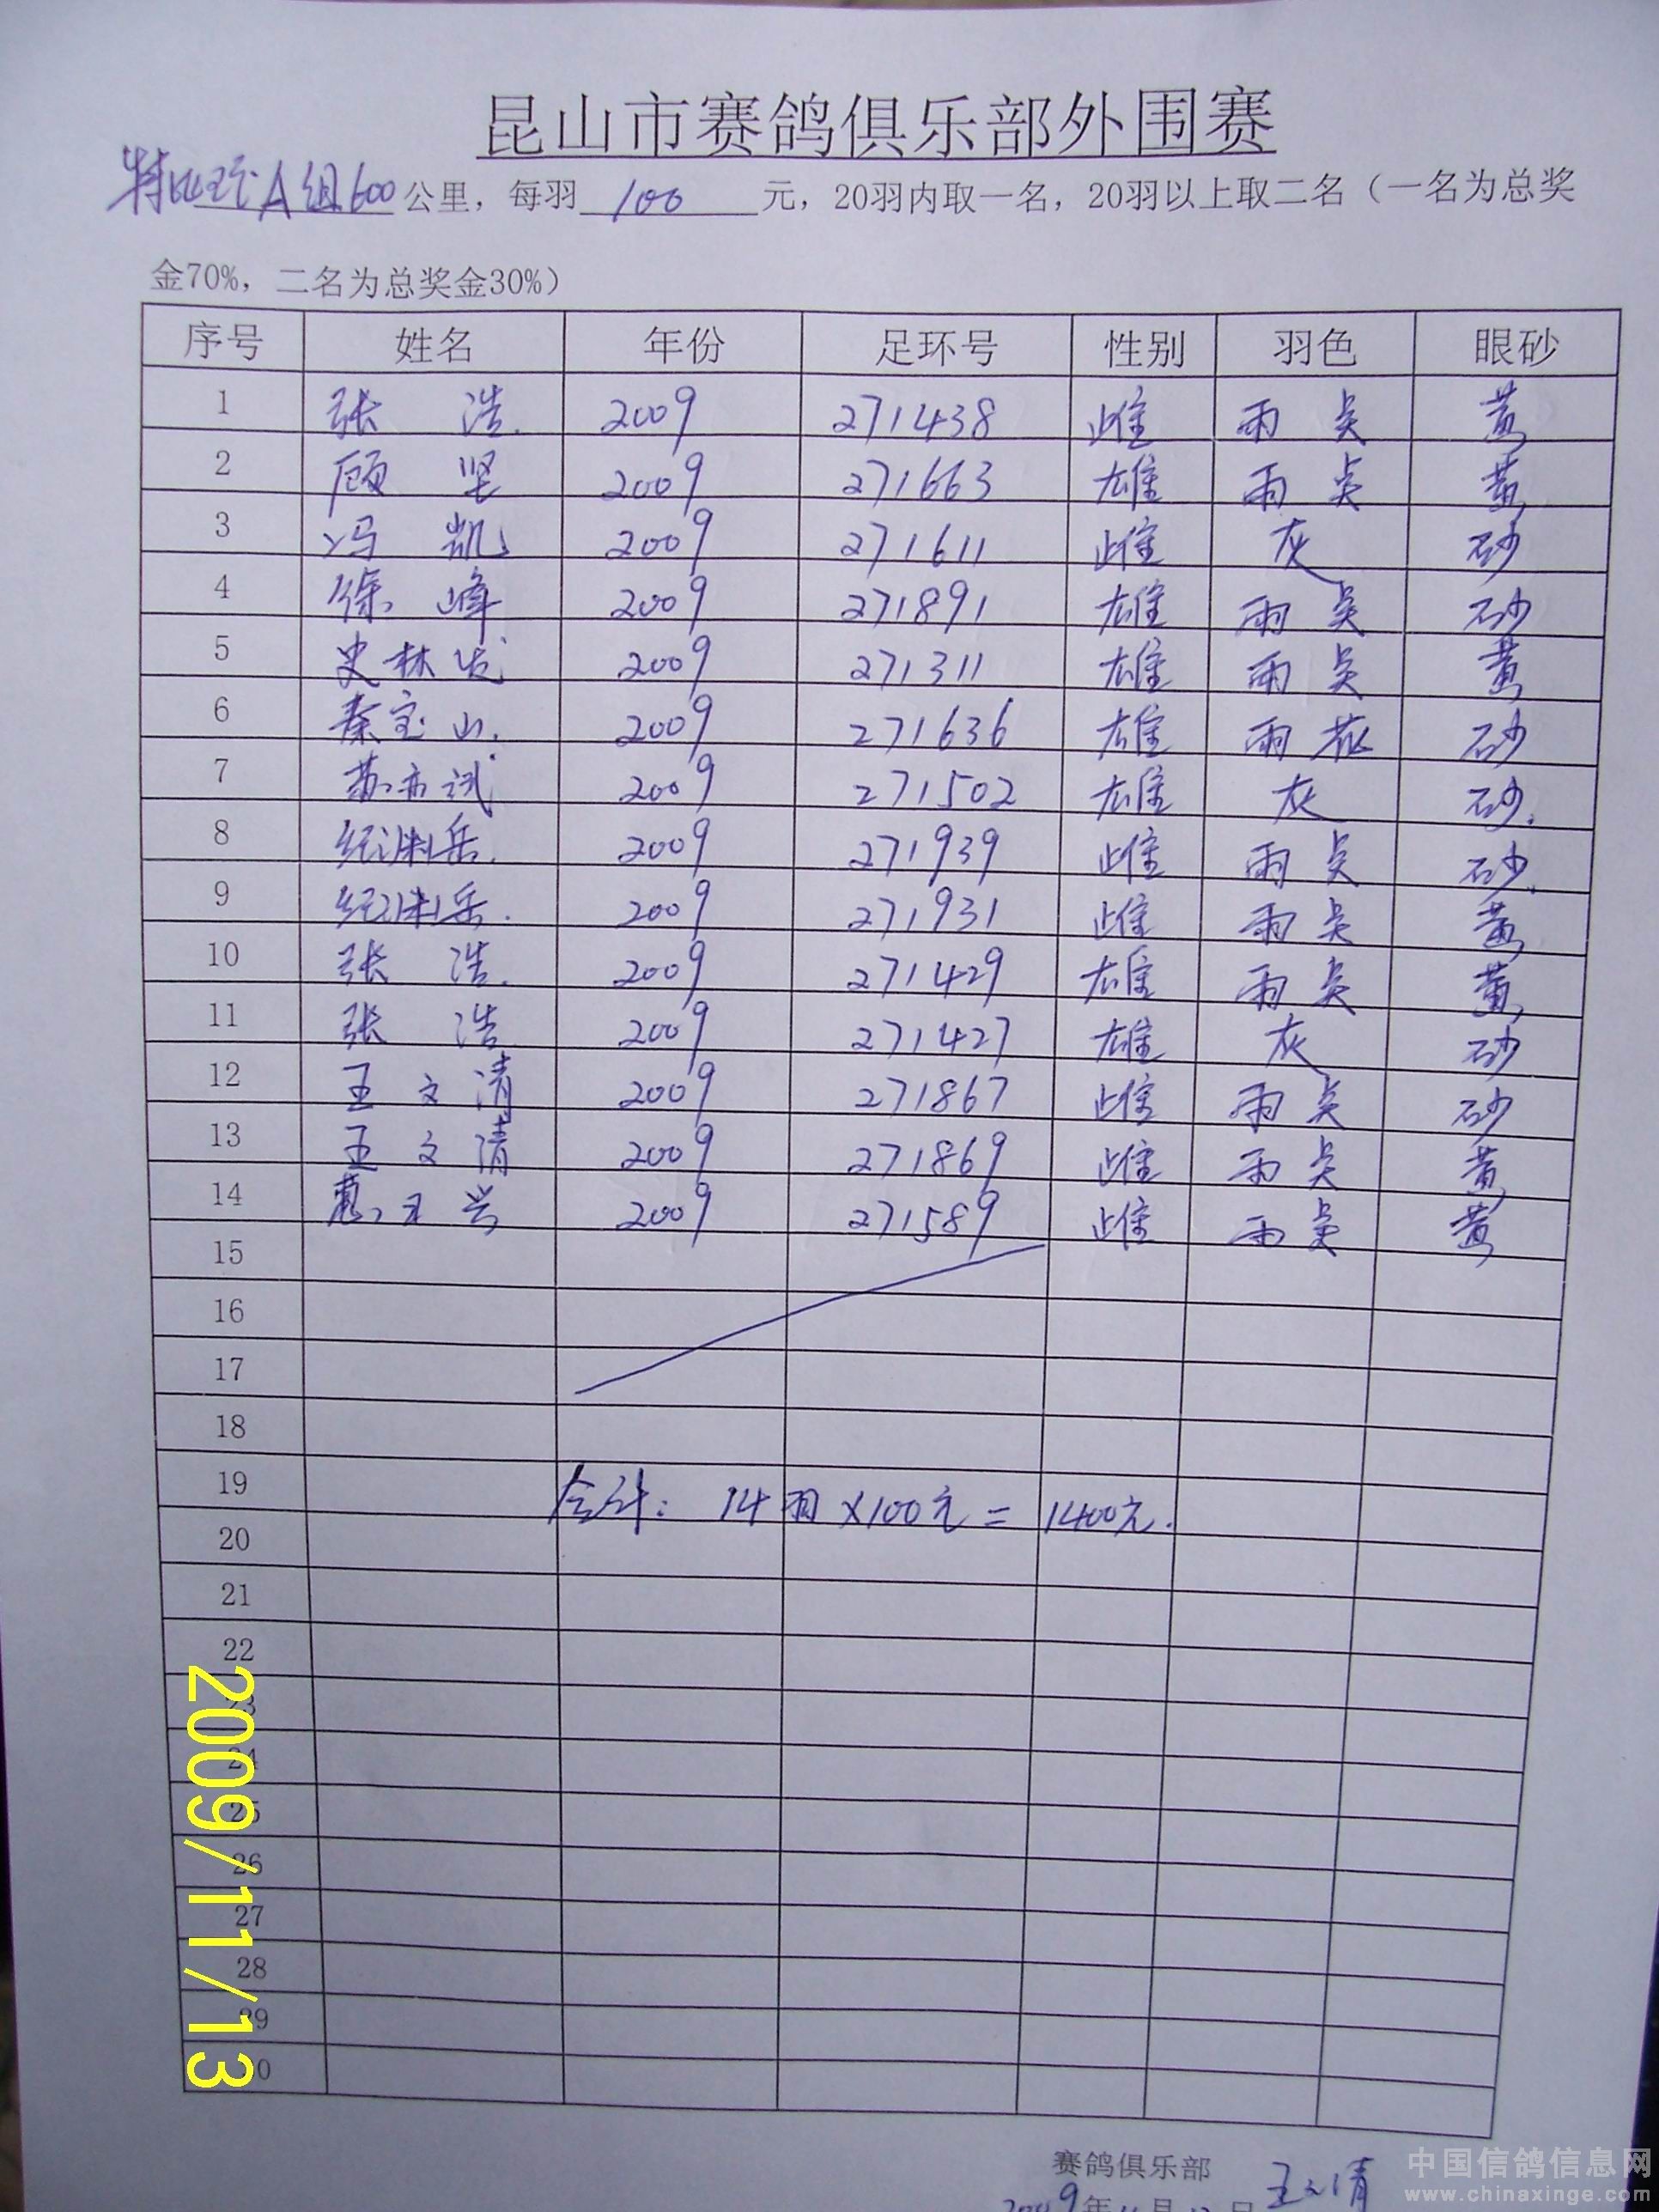 昆山市赛鸽俱乐部外围赛
特比环A组600公里，每羽100元，20羽内取一名，20羽以上取二名（一名为总奖
金70%，二名为总奖金30%）
序号 姓名 年份 足环号 性别 羽色 眼砂
1 张浩 2009 271438 雌 雨点 黄
2 顾坚 2009 271663 雄 雨点 黄
3 冯凯 2009 271611 雌 灰 砂
4 徐峰 2009 271891 雄 雨点 砂
5 史林 2009 271311 雄 雨点 黄
6 秦宝山. 2009 271636 雄 雨花 砂
7 苏亦斌 2009 271502 雄 灰 砂.
8 岳. 2009 271939 雌 雨点 砂.
9 岳. 2009 271931 雌 雨点 黄
10 张浩. 2009 271429 雄 雨点 黄
11 张浩 2009 271427 雄 灰 砂
12 王文清 2009 271867 雌 雨点 砂
13 王文清 2009 271869 雌 雨点 黄
14 2009 271589 雌 雨点 黄
15
16
17
18
19 合计：14羽×100元=1400元.
20
21
22
23
24
25
26
27
28
29
30
2009/11/13
赛鸽俱乐部 王文清
2009年11月
中国信鸽信息网
www.chinaxinge.com